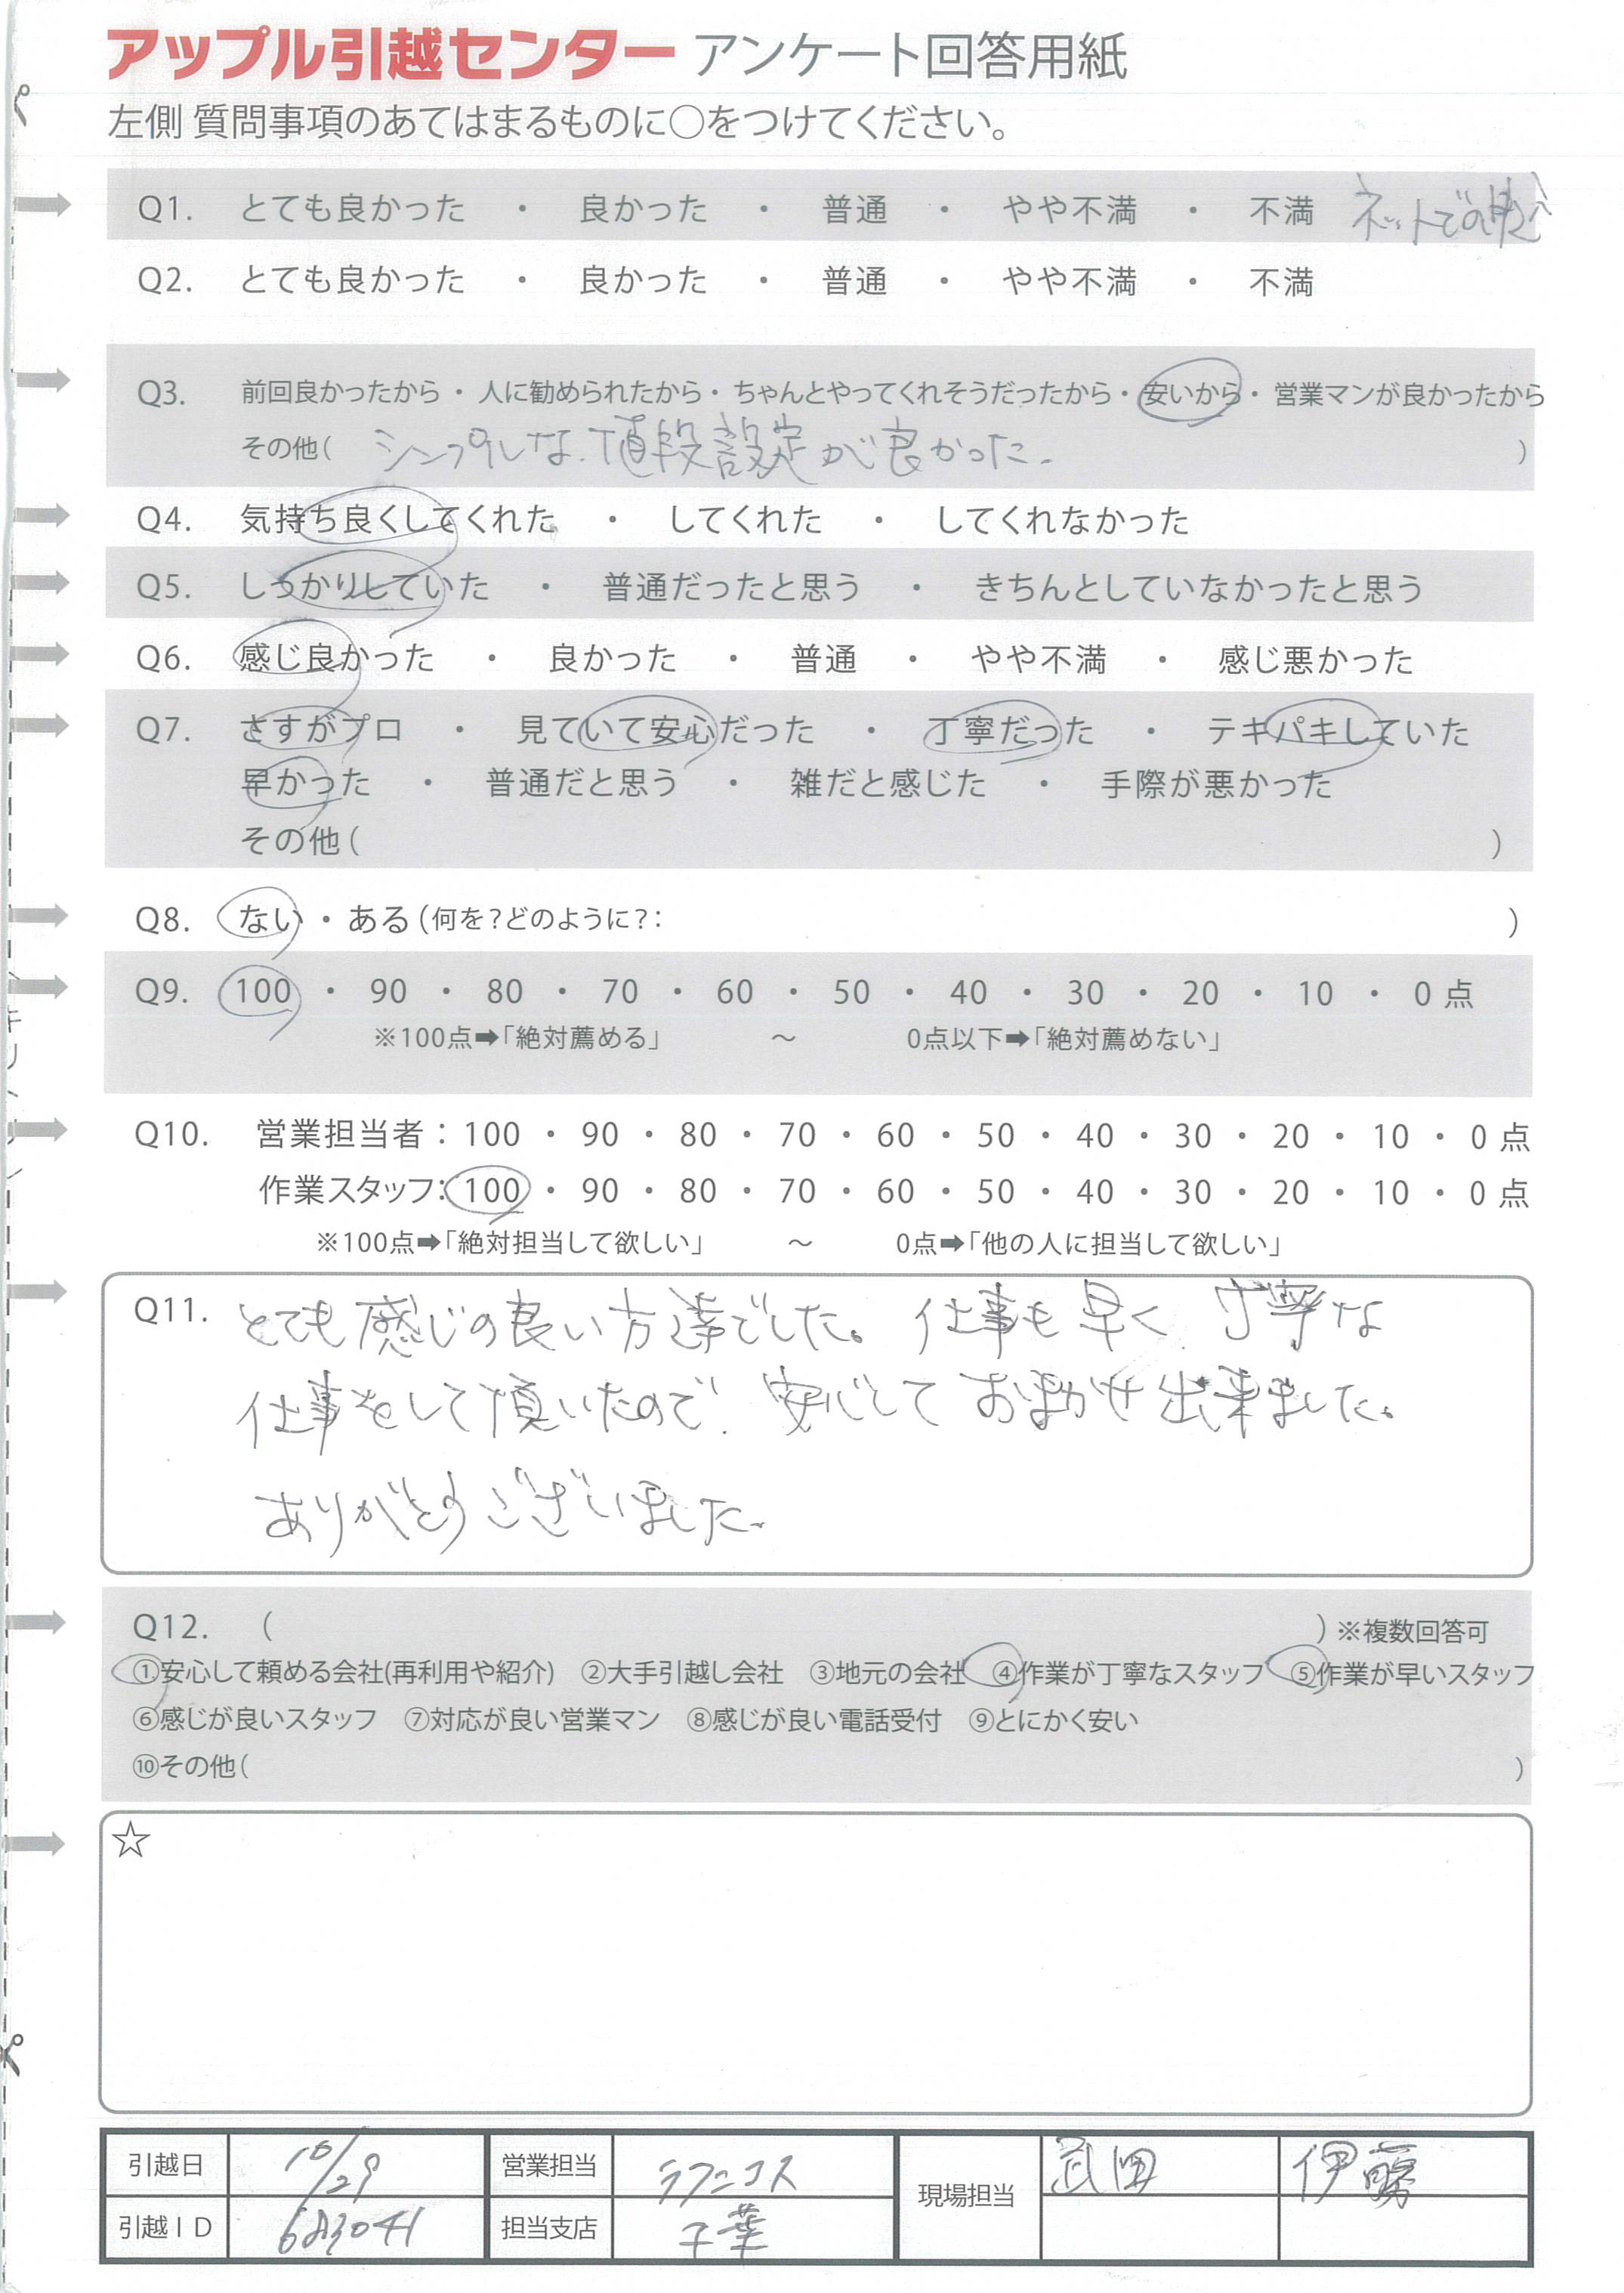 アップル引越センター アンケート回答用紙
左側 質問事項のあてはまるものに○をつけてください。
Q1. とても良かった ・ 良かった ・ 普通 ・ やや不満 ・ 不満 ネットでの申込
Q2. とても良かった ・ 良かった ・ 普通 ・ やや不満 ・ 不満
Q3. 前回良かったから・人に勧められたから・ちゃんとやってくれそうだったから・安いから・営業マンが良かったから
その他( シンプルな、値段設定が良かった。 )
Q4. 気持ち良くしてくれた ・ してくれた ・ してくれなかった
Q5. しっかりしていた ・ 普通だったと思う ・ きちんとしていなかったと思う
Q6. 感じ良かった ・ 良かった ・ 普通 ・ やや不満 ・ 感じ悪かった
Q7. さすがプロ ・ 見ていて安心だった ・ 丁寧だった ・ テキパキしていた
早かった ・ 普通だと思う ・ 雑だと感じた ・ 手際が悪かった
その他( )
Q8. ない・ある(何を?どのように?: )
Q9. 100 ・ 90 ・ 80 ・ 70 ・ 60 ・ 50 ・ 40 ・ 30 ・ 20 ・ 10 ・ 0点
※100点➡「絶対薦める」 ～ 0点以下➡「絶対薦めない」
Q10. 営業担当者：100 ・ 90 ・ 80 ・ 70 ・ 60 ・ 50 ・ 40 ・ 30 ・ 20 ・ 10 ・ 0点
作業スタッフ：100 ・ 90 ・ 80 ・ 70 ・ 60 ・ 50 ・ 40 ・ 30 ・ 20 ・ 10 ・ 0点
※100点➡「絶対担当して欲しい」 ～ 0点➡「他の人に担当して欲しい」
Q11. とても感じの良い方達でした。仕事も早く、丁寧な
仕事をして頂いたので、安心しておまかせ出来ました。
ありがとうございました。
Q12. ( ) ※複数回答可
①安心して頼める会社(再利用や紹介) ②大手引越し会社 ③地元の会社 ④作業が丁寧なスタッフ ⑤作業が早いスタッフ
⑥感じが良いスタッフ ⑦対応が良い営業マン ⑧感じが良い電話受付 ⑨とにかく安い
⑩その他( )
☆
引越日 10/29 営業担当 現場担当 武田 伊藤
引越ID 683041 担当支店 千葉
キリトリ